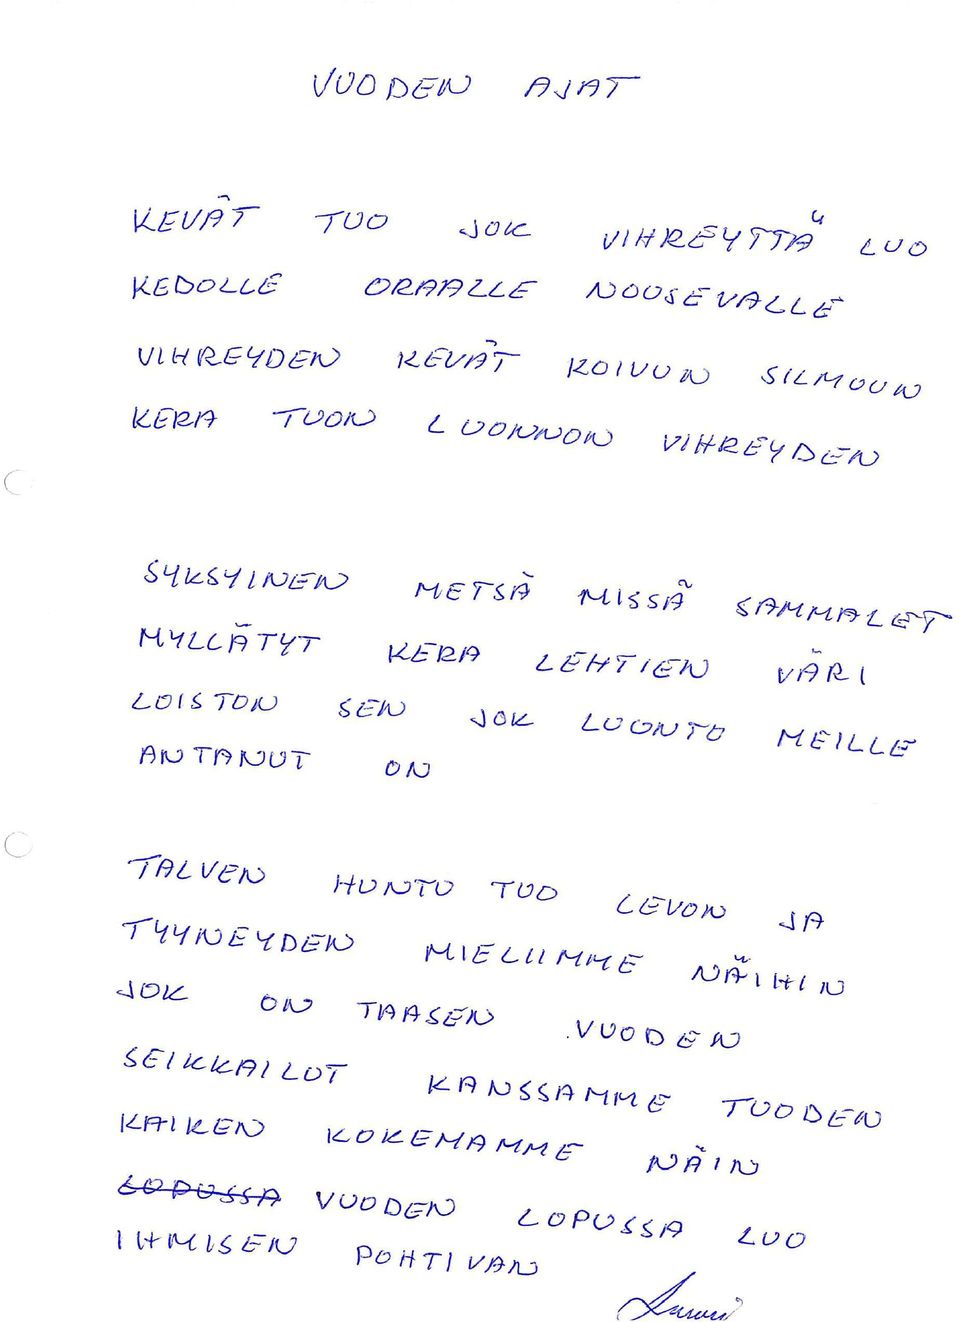 VUODEN AJAT
KEVÄT TUO JOK VIHREYTTÄ LUO
KEDOLLE ORAALLE NOUSEVALLE
VIHREYDEN KEVÄT KOIVUN SILMUUN
KERA TUON LUONNON VIHREYDEN
SYKSYINEN METSÄ MISSÄ SAMMALET
MYLLÄTYT KERA LEHTIEN VÄRI
LOISTON SEN JOK LUONTO MEILLE
ANTANUT ON
TALVEN HUNTU TUO LEVON JA
TYYNEYDEN MIELIIMME NÄIHIN
JOK ON TAASEN VUODEN
SEIKKAILUT KANSSAMME TUODEN
KAIKEN KOKEMAMME NÄIN
LOPUSSA VUODEN LOPUSSA LUO
IHMISEN POHTIVAN